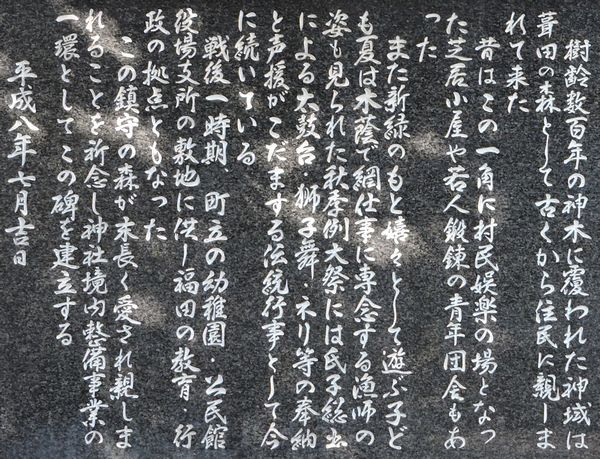 樹齢数百年の神木に覆われた神域は
葺田の森として古くから住民に親しま
れて来た
昔はこの一角に村民娯楽の場となっ
た芝居小屋や若人鍛錬の青年団会もあ
った
また新緑のもと嬉々として遊ぶ子ど
も夏は木蔭で網仕事に専念する漁師の
姿も見られた秋季例大祭には氏子総出
による太鼓台・獅子舞・ネリ等の奉納
と声援がこだまする伝統行事として今
に続いている
戦後一時期、町立の幼稚園・公民館
役場支所の敷地に供し福田の教育・行
政の拠点ともなった
この鎮守の森が末長く愛され親しま
れることを祈念し神社境内整備事業の
一環としてこの碑を建立する
平成八年七月吉日